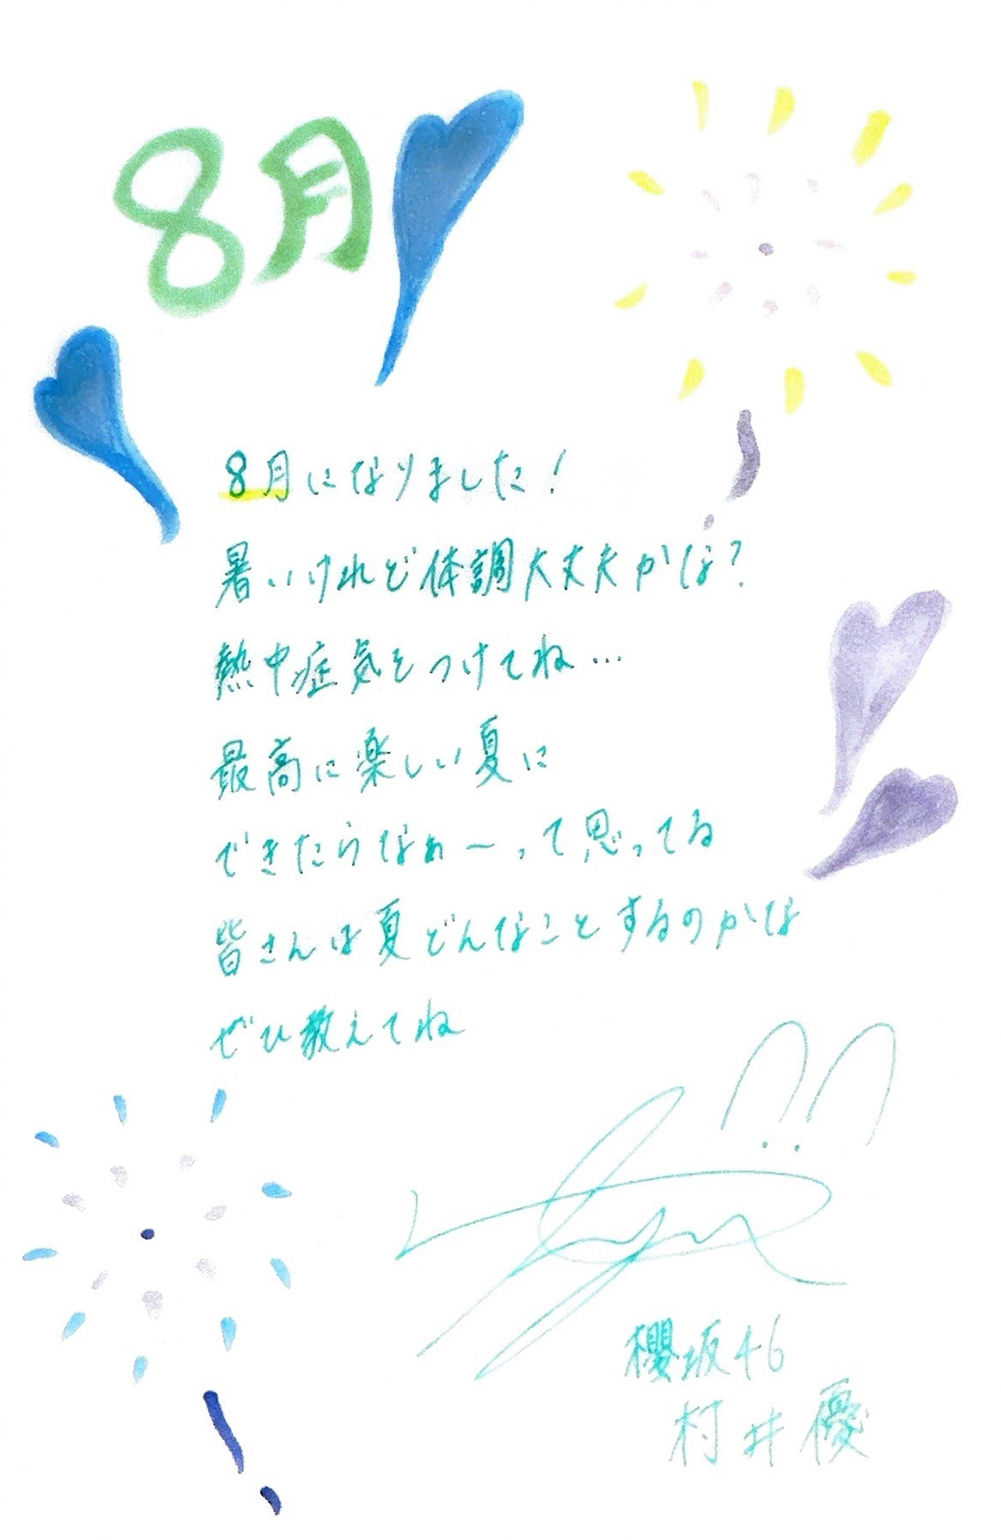 8月
8月になりました!
暑いけれど体調大丈夫かな?
熱中症気をつけてね…
最高に楽しい夏に
できたらなぁ〜って思ってる
皆さんは夏どんなことするのかな
ぜひ教えてね
櫻坂46
村井優